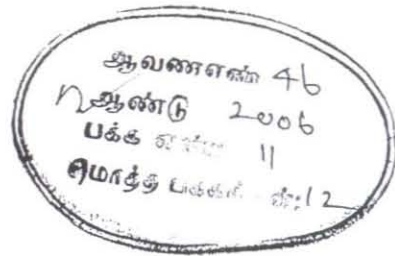 ஆவணஎண் 46
ஆண்டு 2006
பக்க எண் 11
மொத்த பக்கங்கள் 12